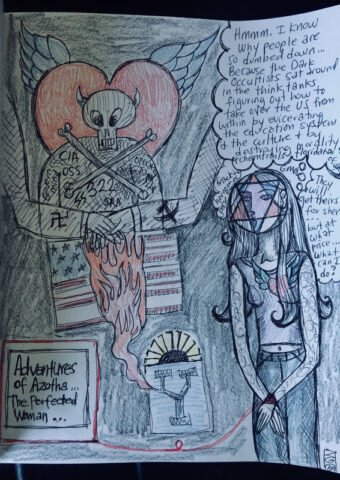 Hmmm. I Know
Why people are
so dumbed down...
Because the Dark
Occultists sat around
in the think tanks
figuring out how to
take over the US from
within by eviscerating
the education system
& the culture & by
destroying plurality,
They
will
get theirs
for sher
... but at
what
price...
what
can I
do?
CIA
OSS
322
SRA
Adventures
of Azotha...
The Perfected
Woman...